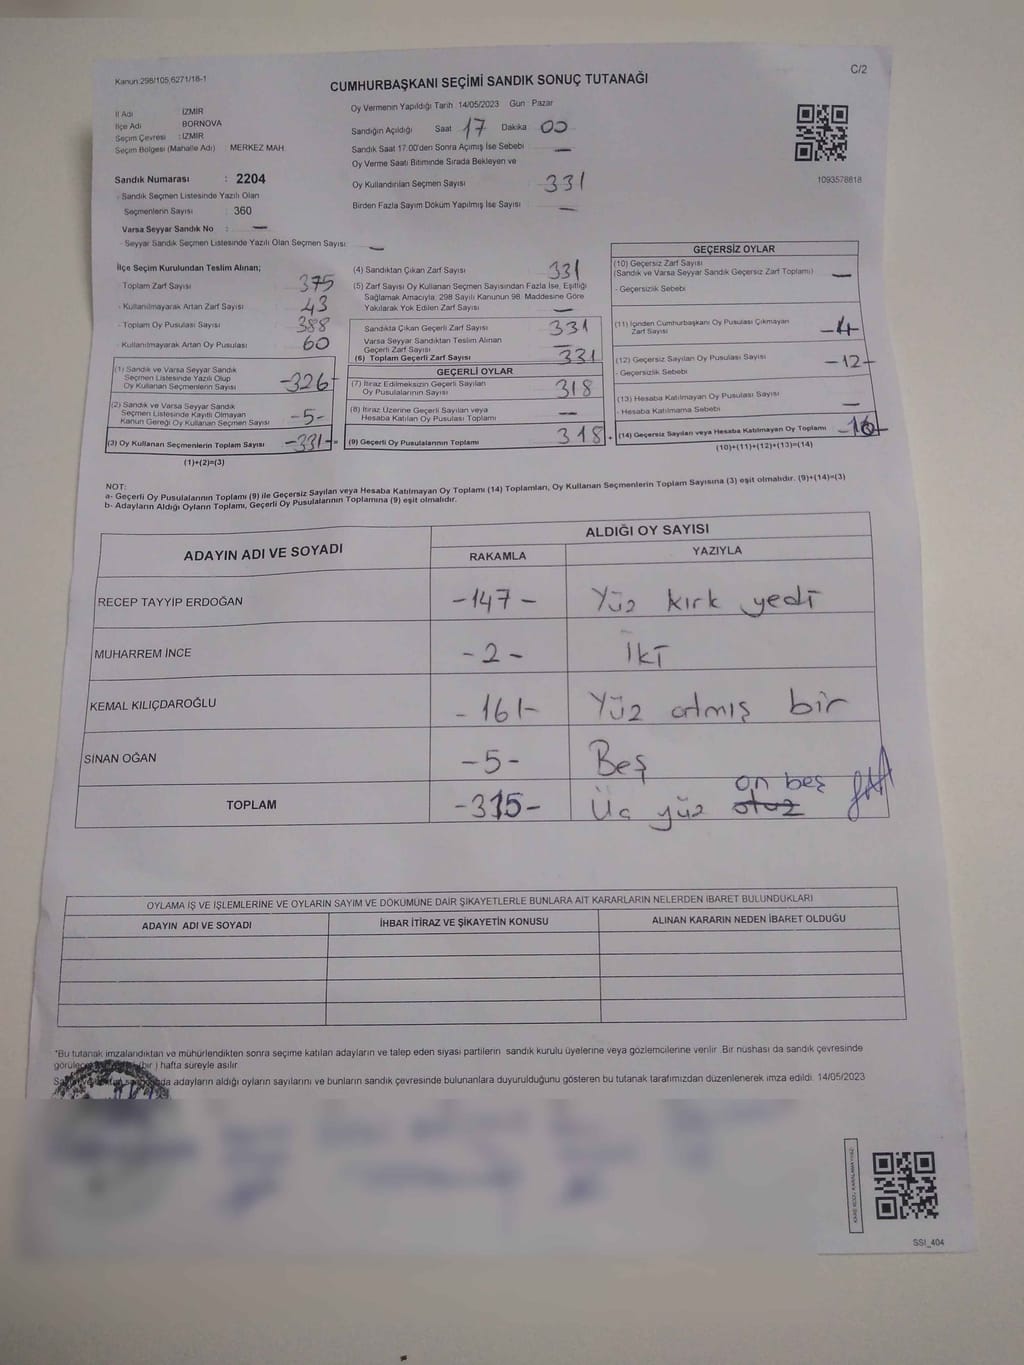 Kanun:298/105,6271/18-1
C/2
CUMHURBAŞKANI SEÇİMİ SANDIK SONUÇ TUTANAĞI
İl Adı : İZMİR
İlçe Adı : BORNOVA
Seçim Çevresi : İZMİR
Seçim Bölgesi (Mahalle Adı) : MERKEZ MAH.
Sandık Numarası : 2204
- Sandık Seçmen Listesinde Yazılı Olan
Seçmenlerin Sayısı : 360
Varsa Seyyar Sandık No : —
- Seyyar Sandık Seçmen Listesinde Yazılı Olan Seçmen Sayısı: —
Oy Vermenin Yapıldığı Tarih :14/05/2023 Gün : Pazar
Sandığın Açıldığı Saat 17 Dakika 00
Sandık Saat 17:00'den Sonra Açımış İse Sebebi —
Oy Verme Saati Bitiminde Sırada Bekleyen ve
Oy Kullandırılan Seçmen Sayısı 331
Birden Fazla Sayım Döküm Yapılmış İse Sayısı —
1093578818
İlçe Seçim Kurulundan Teslim Alınan;
- Toplam Zarf Sayısı 375
- Kullanılmayarak Artan Zarf Sayısı 43
- Toplam Oy Pusulası Sayısı 388
- Kullanılmayarak Artan Oy Pusulası 60
(1) Sandık ve Varsa Seyyar Sandık
Seçmen Listesinde Yazılı Olup
Oy Kullanan Seçmenlerin Sayısı -326-
(2) Sandık ve Varsa Seyyar Sandık
Seçmen Listesinde Kayıtlı Olmayan
Kanun Gereği Oy Kullanan Seçmen Sayısı -5-
(3) Oy Kullanan Seçmenlerin Toplam Sayısı -331-
(1)+(2)=(3)
(4) Sandıktan Çıkan Zarf Sayısı 331
(5) Zarf Sayısı Oy Kullanan Seçmen Sayısından Fazla İse, Eşitliği
Sağlamak Amacıyla, 298 Sayılı Kanunun 98. Maddesine Göre
Yakılarak Yok Edilen Zarf Sayısı —
Sandıkta Çıkan Geçerli Zarf Sayısı 331
Varsa Seyyar Sandıktan Teslim Alınan
Geçerli Zarf Sayısı —
(6) Toplam Geçerli Zarf Sayısı 331
GEÇERLİ OYLAR
(7) İtiraz Edilmeksizin Geçerli Sayılan
Oy Pusulalarının Sayısı 318
(8) İtiraz Üzerine Geçerli Sayılan veya
Hesaba Katılan Oy Pusulası Toplamı —
= (9) Geçerli Oy Pusulalarının Toplamı 318
GEÇERSİZ OYLAR
(10) Geçersiz Zarf Sayısı
(Sandık ve Varsa Seyyar Sandık Geçersiz Zarf Toplamı) —
- Geçersizlik Sebebi
(11) İçinden Cumhurbaşkanı Oy Pusulası Çıkmayan
Zarf Sayısı -4-
(12) Geçersiz Sayılan Oy Pusulası Sayısı -12-
- Geçersizlik Sebebi
(13) Hesaba Katılmayan Oy Pusulası Sayısı —
- Hesaba Katılmama Sebebi
+ (14) Geçersiz Sayılan veya Hesaba Katılmayan Oy Toplamı -16-
(10)+(11)+(12)+(13)=(14)
NOT:
a- Geçerli Oy Pusulalarının Toplamı (9) ile Geçersiz Sayılan veya Hesaba Katılmayan Oy Toplamı (14) Toplamları, Oy Kullanan Seçmenlerin Toplam Sayısına (3) eşit olmalıdır. (9)+(14)=(3)
b- Adayların Aldığı Oyların Toplamı, Geçerli Oy Pusulalarının Toplamına (9) eşit olmalıdır.
ADAYIN ADI VE SOYADI
ALDIĞI OY SAYISI
RAKAMLA YAZIYLA
RECEP TAYYİP ERDOĞAN -147- Yüz kırk yedi
MUHARREM İNCE -2- İki
KEMAL KILIÇDAROĞLU -161- Yüz atmış bir
SİNAN OĞAN -5- Beş
TOPLAM -315- Üç yüz otuz on beş
OYLAMA İŞ VE İŞLEMLERİNE VE OYLARIN SAYIM VE DÖKÜMÜNE DAİR ŞİKAYETLERLE BUNLARA AİT KARARLARIN NELERDEN İBARET BULUNDUKLARI
ADAYIN ADI VE SOYADI İHBAR İTİRAZ VE ŞİKAYETİN KONUSU ALINAN KARARIN NEDEN İBARET OLDUĞU
*Bu tutanak imzalandıktan ve mühürlendikten sonra seçime katılan adayların ve talep eden siyasi partilerin sandık kurulu üyelerine veya gözlemcilerine verilir. Bir nüshası da sandık çevresinde
(bir ) hafta süreyle asılır.
adayların aldığı oyların sayılarını ve bunların sandık çevresinde bulunanlara duyurulduğunu gösteren bu tutanak tarafımızdan düzenlenerek imza edildi. 14/05/2023
SSI_404